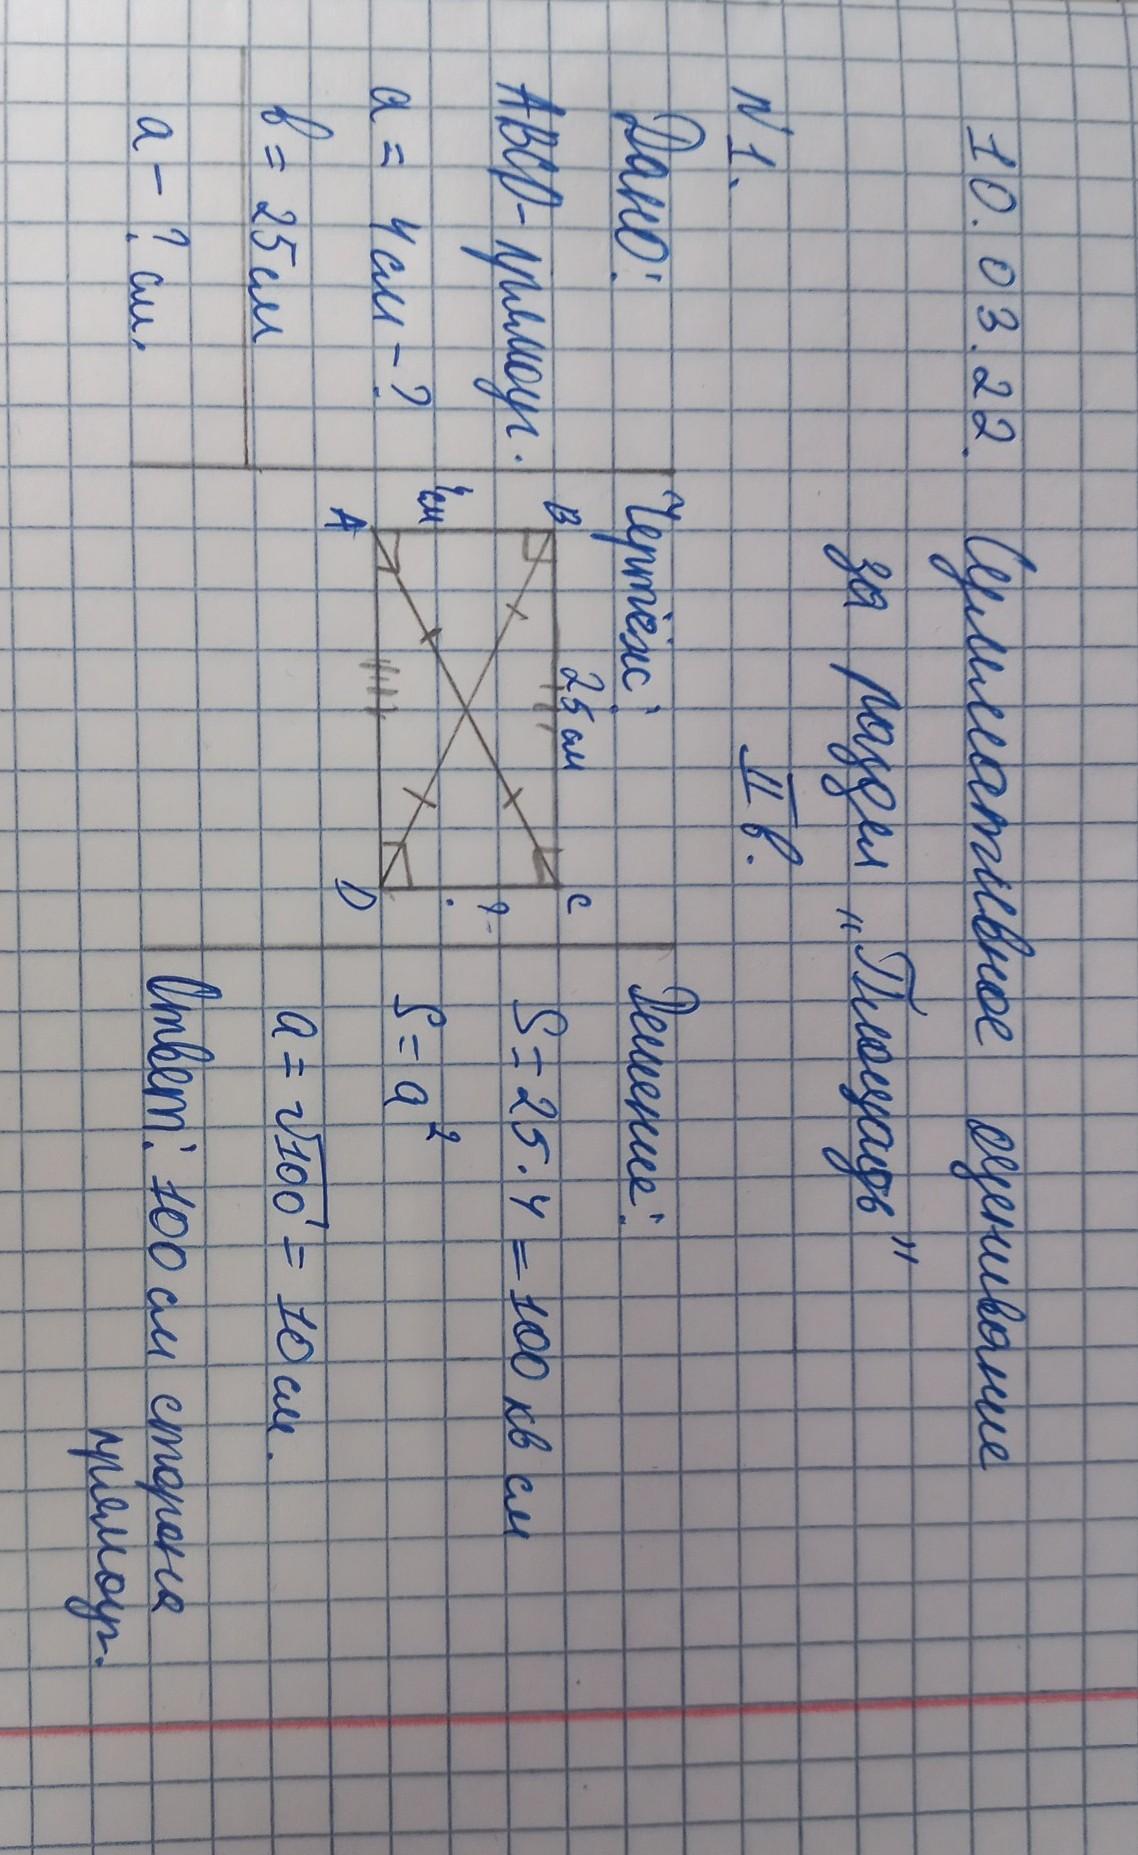 10.03.22. Суммативное оценивание
за раздел „Площадь"
II в.
N 1.
Дано:
ABCD - прямоуг.
a = 4 см - ?
b = 25 см
a - ? см.
Чертёж:
B
25 см
C
4 см
?
A
D
Решение:
S = 25 · 4 = 100 кв см
S = a²
a = √100 = 10 см.
Ответ: 100 см сторона
прямоуг.